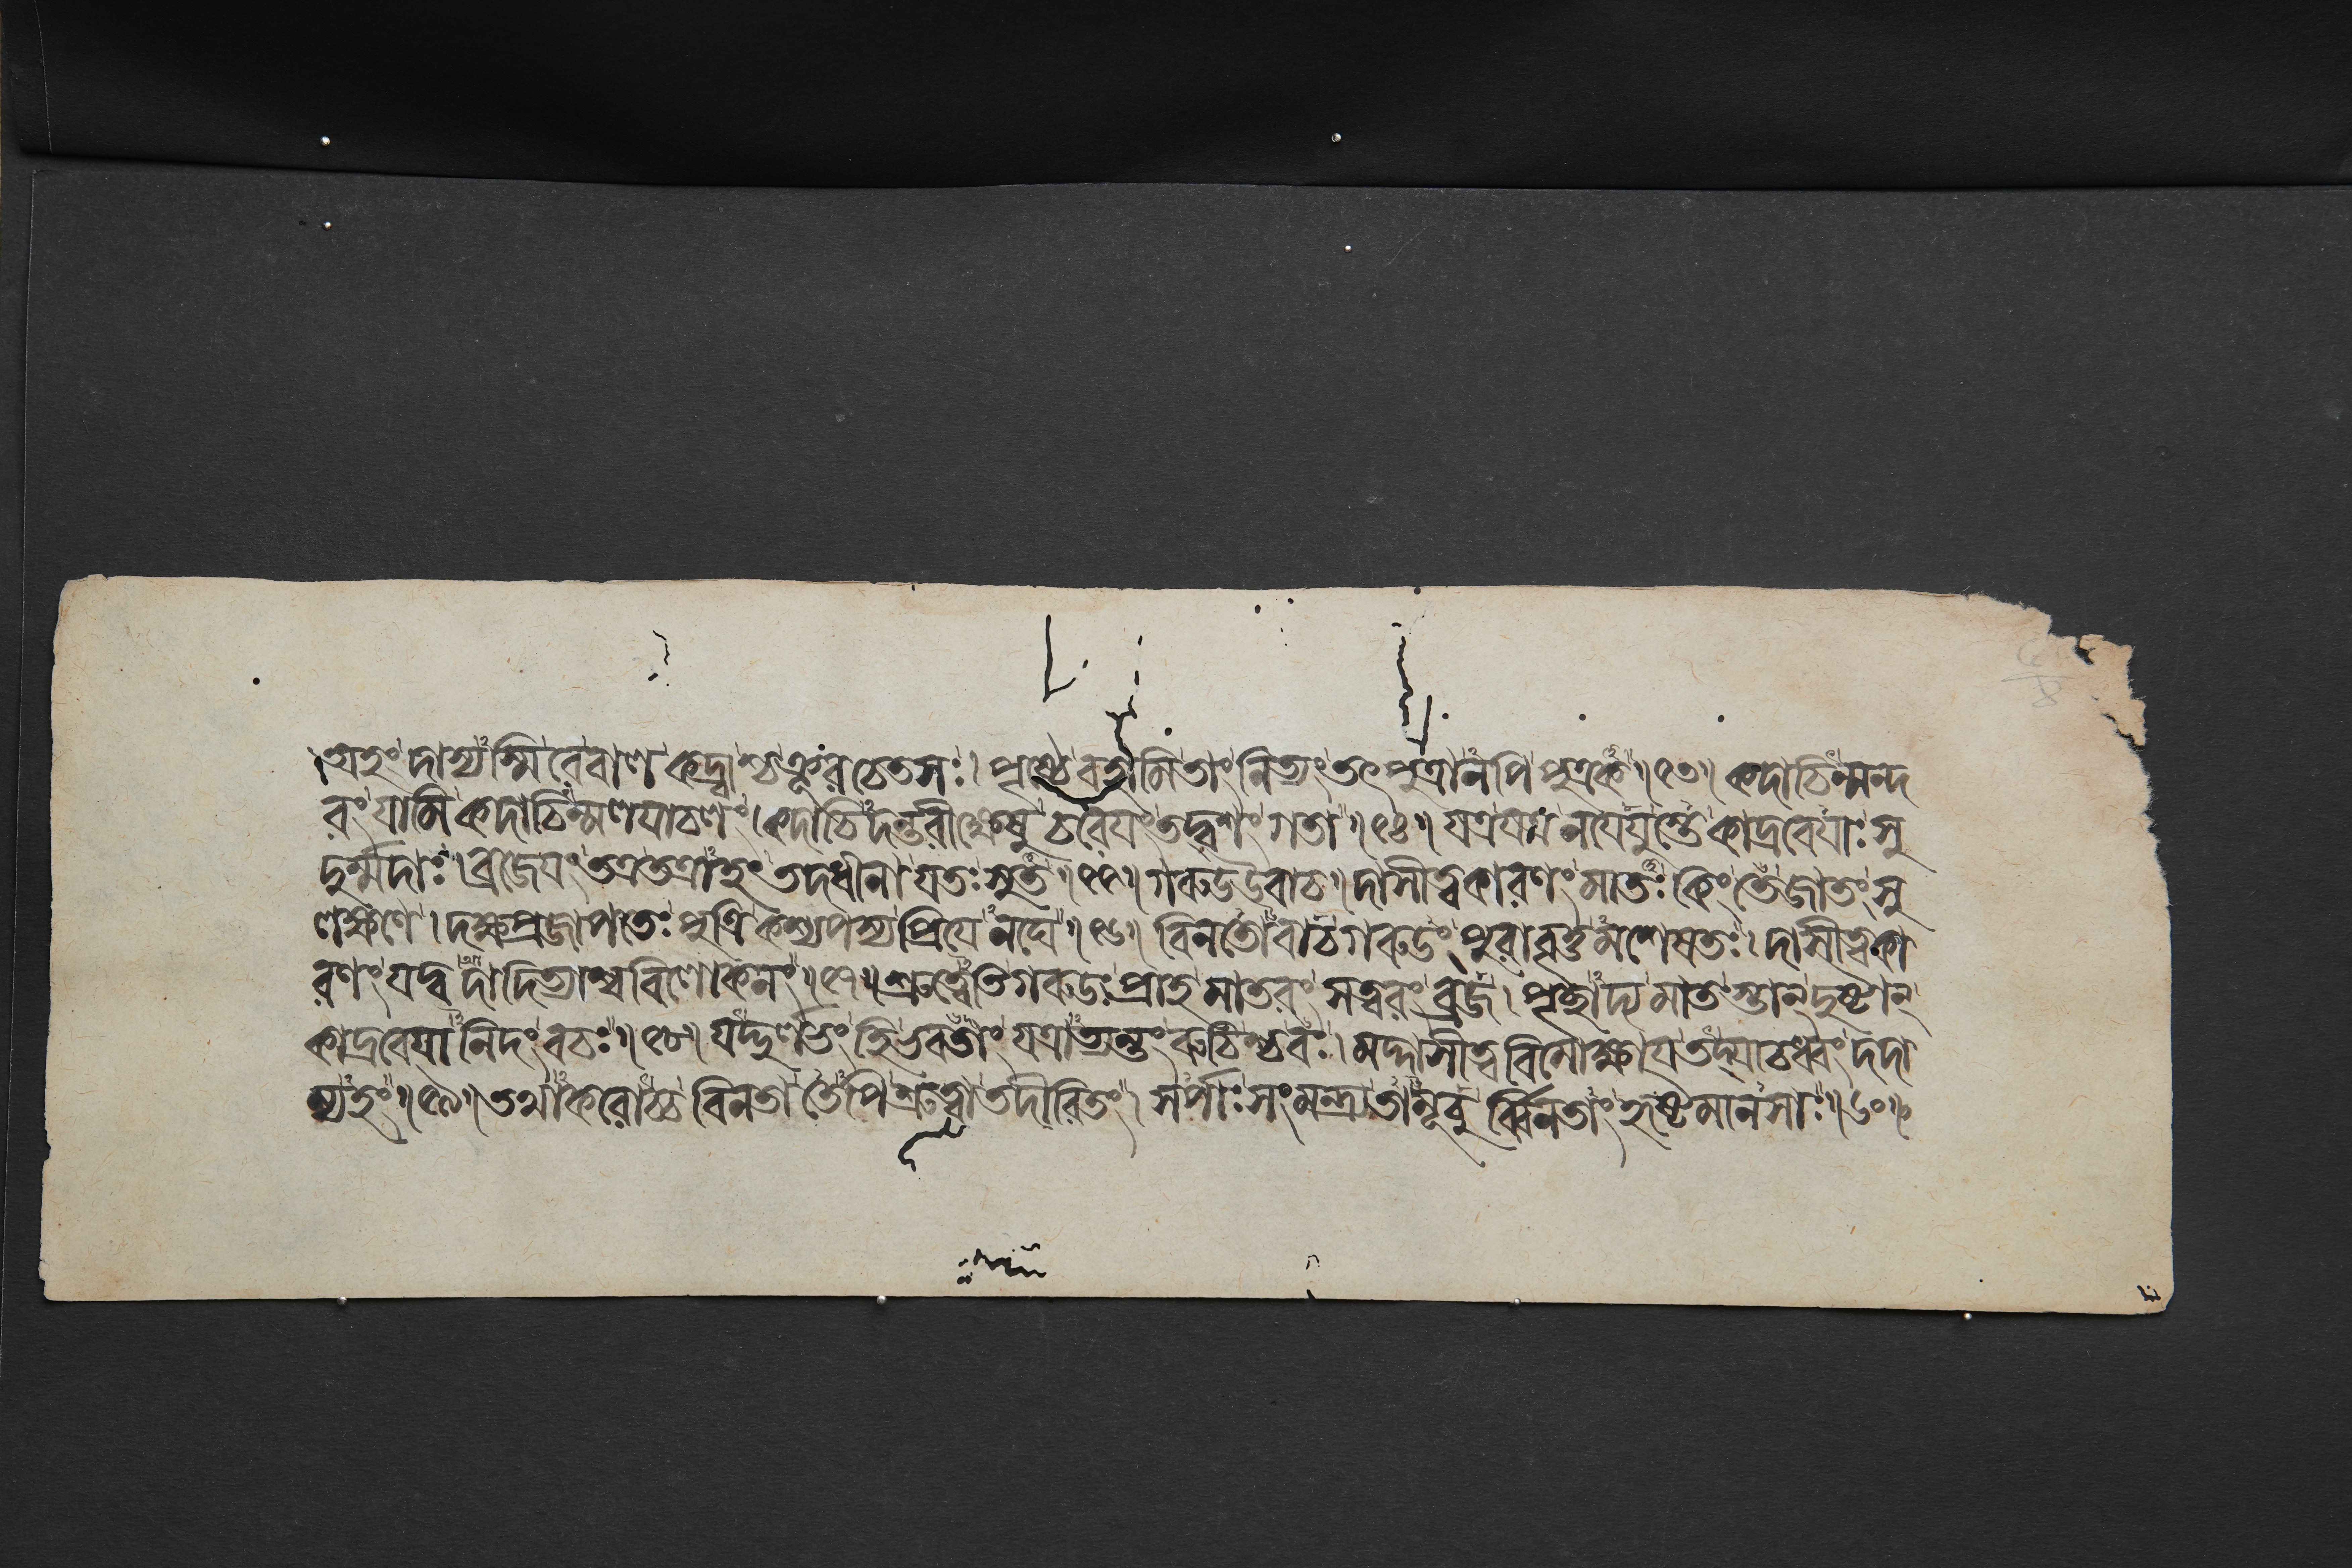 । অহং দাস্যস্মি বৈ বাল কদ্র্বাশ্চ ক্রূরচেতসঃ। পৃষ্ঠে বহামি তাং নিত্যং তৎপুত্রানপি পুত্রক॥৫৩॥ কদাচিন্মন্দ
রং যামি কদাচিন্মলযাচলং। কদাচিদন্তরীক্ষেষু চরেযং তদ্বশং গতা॥৫৪॥ যত্র যত্র নযেযুস্তে কাদ্রবেযাঃ সু
দুর্ম্মদাঃ। ব্রজেযং তত্র তত্রাহং তদধীনা যতঃ সুত॥৫৫॥ গরুড উবাচ॥ দাসীত্বকারণং মাতঃ কিং তে জাতং সু
লক্ষণে। দক্ষপ্রজাপতেঃ পুত্রি কশ্যপস্য প্রিযেনঘে॥৫৬॥ বিনতোবাচ গরুডং পুরাবৃত্তমশেষতঃ। দাসীত্বকা
রণং যদ্বদাদিত্যাশ্ববিলোকনং॥৫৭॥ শ্রুত্বেতি গরুডঃ প্রাহ মাতরং সত্বরং ব্রজ। পৃচ্ছাদ্য মাতস্তান্ দুষ্টান্
কাদ্রবেযানিদং বচঃ॥৫৮॥ যদ্দুর্লভং হি ভবতাং যত্রাত্যন্তং রুচিশ্চ বঃ। মদ্দাসীত্ববিমোক্ষায তদ্যাচধ্বং দদা
ম্যহং॥৫৯॥ তথাকরোচ্চ বিনতা তেপি শ্রুত্বা তদীরিতং। সর্পাঃ সংমন্ত্র্য তামূচুর্ব্বিনতাং হৃষ্টমানসাঃ॥৬০॥